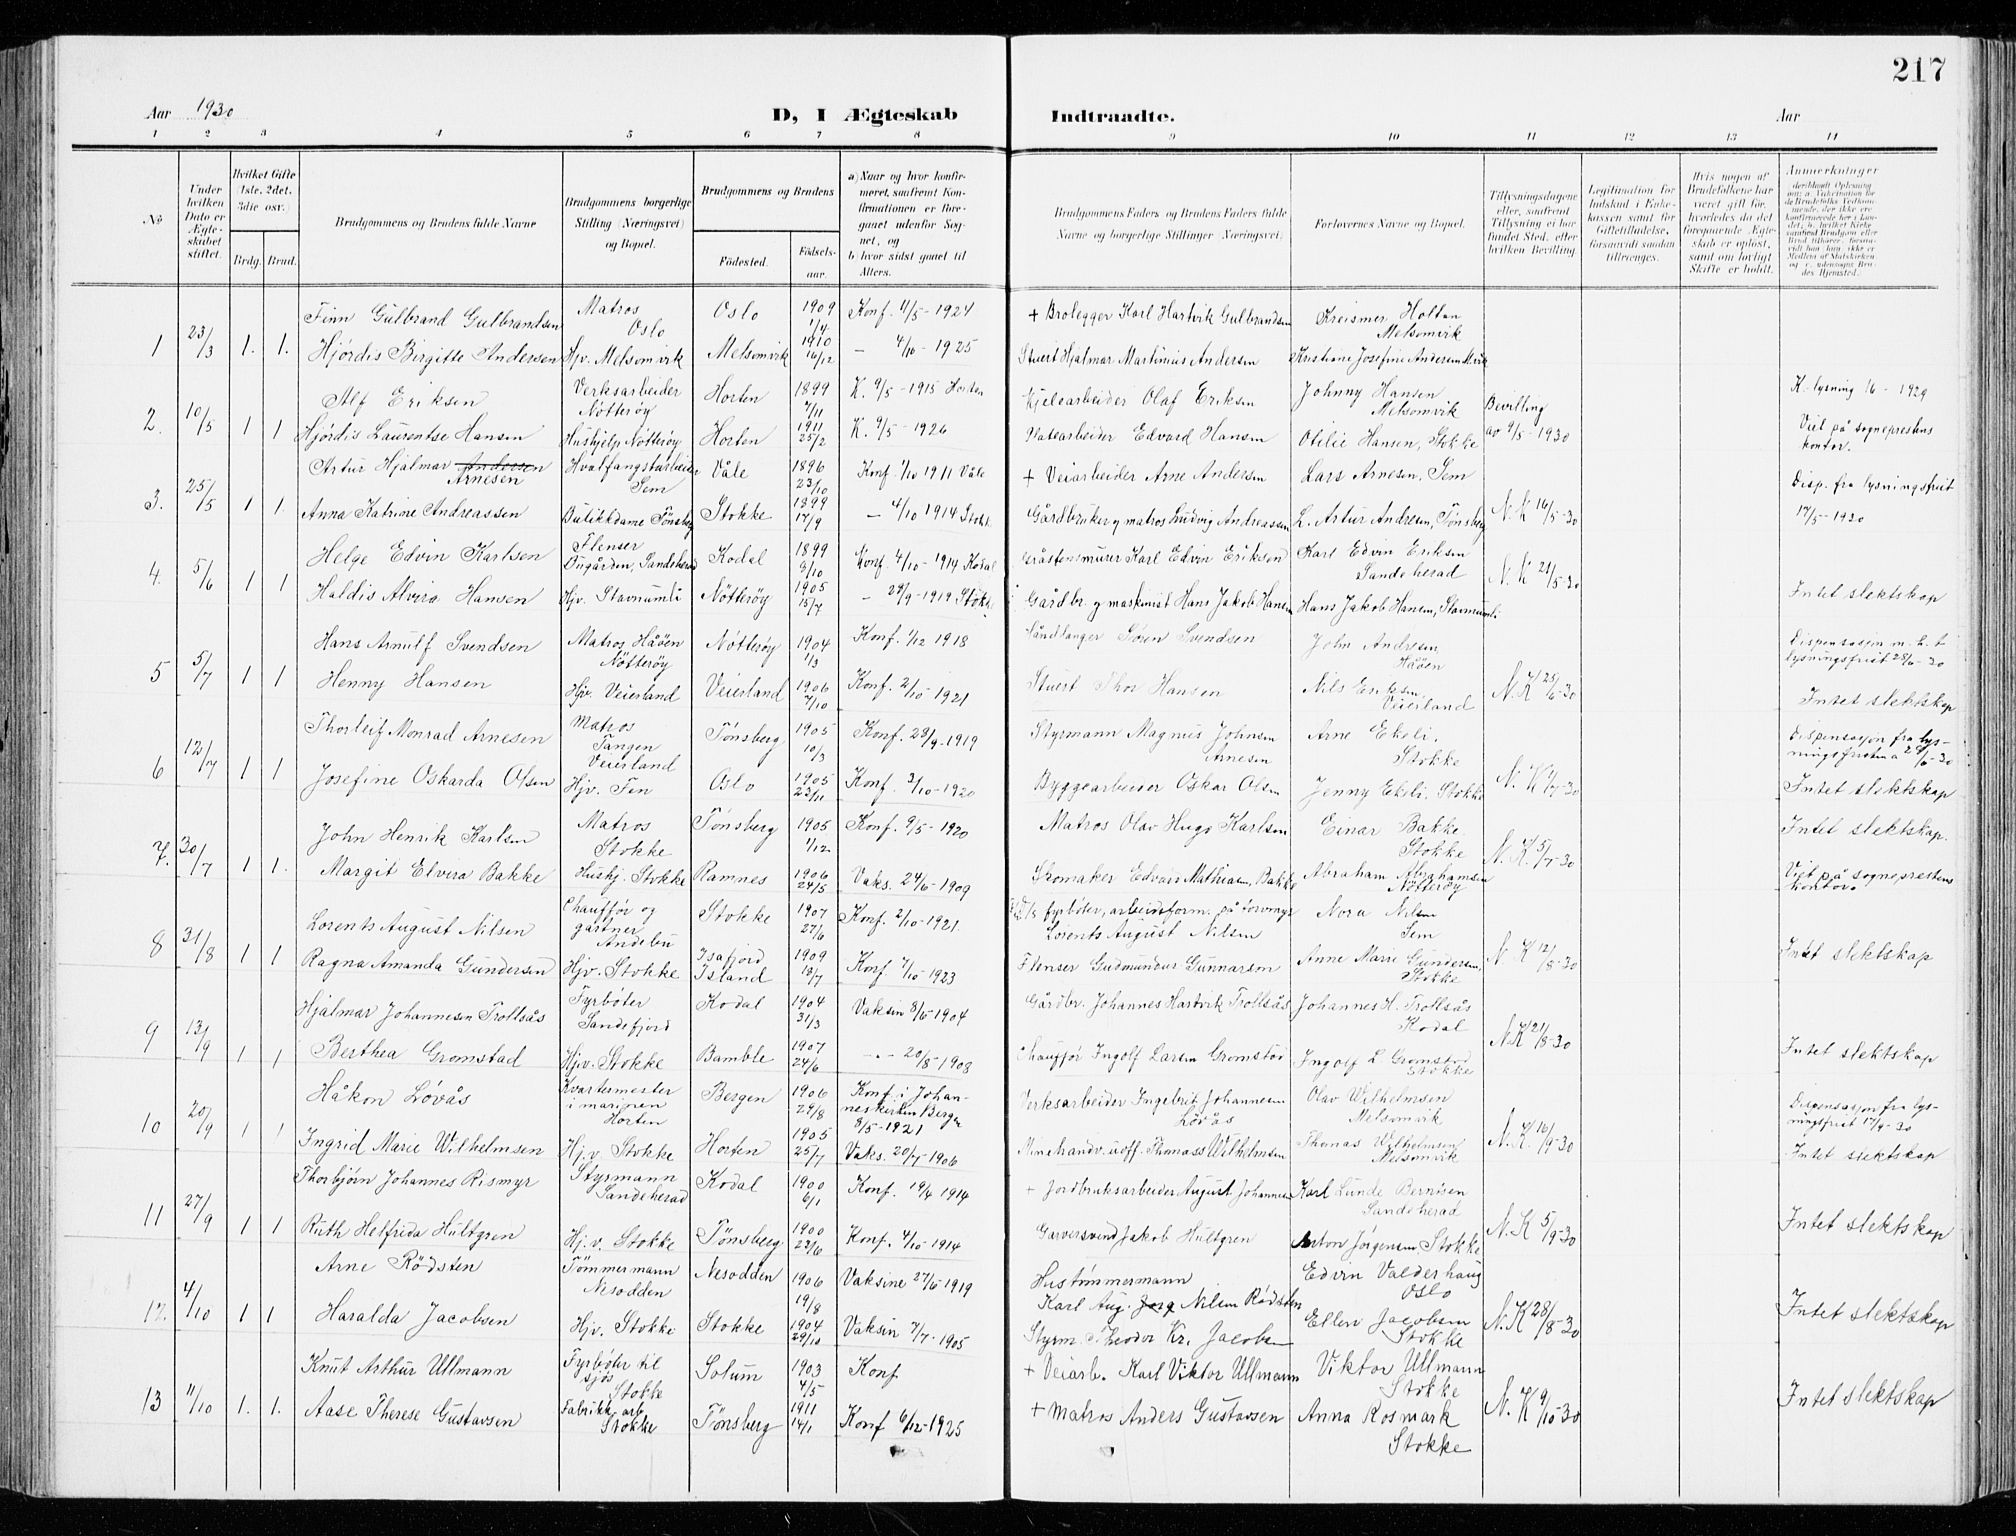 217
Aar 1930
D, I Ægteskab Indtraadte.
Aar
1 2 3 4 5 6 7 8 9 10 11 12 13 14
№
Under hvilken Dato er Ægteskabet stiftet.
Hvilket Gifte (1ste, 2det, 3die osv.)
Brdg. Brud.
Brudgommens og Brudens fulde Navne
Brudgommens borgerlige Stilling (Næringsvei) og Bopæl.
Brudgommens og Brudens
Fødested. Fødselsaar.
a) Naar og hvor konfirmeret, saafremt Konfirmationen er foregaaet udenfor Sognet, og
b) hvor sidst gaaet til Alters.
Brudgommens Faders og Brudens Faders fulde Navne og borgerlige Stillinger (Næringsvei)
Forlovernes Navne og Bopæl.
Tillysningsdagene eller, saafremt Tillysning ei har fundet Sted, efter hvilken Bevilling
Legitimation for Indskud i Enkekassen samt for Giftetilladelse, forsaavidt saadan tiltrænges.
Hvis nogen af Brudefolkene har været gift før, hvorledes da det foregaaende Ægteskab er opløst, samt om lovligt Skifte er holdt.
Anmerkninger
1 23/3 1. 1.
Finn Gulbrand Gulbrandsen Matros Oslo Oslo 1909 1/4 Konf. 11/5-1924 + Brolegger Karl Hartvik Gulbrandsen Kreismer Holtan Melsomvik
Hjørdis Birgitte Andersen Hjv. Melsomvik Melsomvik 1910 16/12 — 4/10-1925 Stuert Hjalmar Martinius Andersen Kristiane Josefine Andersen M.vik
2. 10/5 1 1
Alf Eriksen Verksarbeider Nøtterøy Horten 1899 7/11 K. 9/5-1915 Horten Kjelearbeider Olaf Eriksen Johnny Hansen Melsomvik Bevilling av 9/5-1930 K-lysning 16 - 1929
Hjørdis Laurentse Hansen Hushjelp Nøtterøy Horten 1911 25/2 K. 9/5-1926 Platearbeider Edvard Hansen Otilie Hansen, Stokke Viet på sogneprestens kontor.
3. 25/5 1 1.
Artur Hjalmar Andersen Arnesen Hvalfangstarbeider Sem Våle 1896 23/10 Konf 1/10 1911 Våle + Veiarbeider Arne Andersen Lars Arnesen, Sem N.K 16/5-30 Disp. fra lysningsfrist
Anna Katrine Andreassen Butikkdame Tønsberg Stokke 1899 17/9 — 4/10 1914 Stokke Gårdbruker og matros Ludvig Andreassen L. Artur Andresen, Tønsberg 17/5-1930
4. 5/6 1 1
Helge Edvin Karlsen Flenser Bugården, Sandeherad Kodal 1899 9/10 Konf. 4/10-1914 Kodal Gråstensmurer Karl Edvin Eriksen Karl Edvin Eriksen Sandeherad N.K 21/5-30
Haldis Alvira Hansen Hjv. Stavnumli Nøtterøy 1905 15/7 — 28/9-1919 Stokke Gårdbr. og maskinist Hans Jakob Hansen Hans Jakob Hansen, Stavnumli. Intet slektskap
5 5/7 1 1
Hans Arnulf Svendsen Matros Håøen Nøtterøy Nøtterøy 1904 1/3 Konf. 1/12 1918 Håndlanger Søren Svendsen John Andresen, Håøen N.K 25/6-30 Dispensasjon m.h.t. lysningsfrist 28/6-30
Henny Hansen Hjv. Veierland Veierland 1906 7/10 Konf. 2/10-1921 Stuert Thor Hansen Nils Eriksen, Veierland Intet slektskap
6 12/7 1 1
Thorleif Monrad Arnesen Matros Tangen Veierland Tønsberg 1905 10/3 Konf. 28/9-1919 Styrmann Magnus Johnsen Arnesen Arne Ekeli. Stokke Dispensasjon fra lysningsfristen
Josefine Oskarda Olsen Hjv. Fen Oslo 1905 23/11 Konf. 3/10-1920 Byggearbeider Oskar Olsen Jenny Ekeli. Stokke Intet slektskap
7. 30/7 1 1.
John Henrik Karlsen Matros Stokke Tønsberg 1905 1/12 Konf. 9/5-1920 Matros Olav Hugo Karlsen Einar Bakke. Stokke N.K. 5/7-30 Intet slektskap.
Margit Elvira Bakke Hushj. Stokke Ramnes 1906 24/5 Vaks. 24/6-1909 Skomaker Edvard Mathiasen, Bakke Abraham Abrahamsen Nøtterøy Viet på sogneprestens kontor.
8 31/8 1 1
Lorents August Nilsen Chauffør og gartner Andebu Stokke 1907 27/6 Konf. 2/10-1921. fyrbøter, arbeidsform. på torvmyr Lorents August Nilsen Nora Nilsen Sem N.K 12/8-30
Ragna Amanda Gundersen Hjv. Stokke Isafjord Island 1909 18/7 Konf 7/10-1923 Flenser Gudmundur Gunnarsen Anne Marie Gundersen, Stokke Intet slektskap
9 13/9 1 1
Hjalmar Johannesen Trollsås Fyrbøter Sandefjord Kodal 1904 31/3 Vaksin 8/6-1904 Gårdbr. Johannes Hartvik Trollsås Johannes H. Trollsås Kodal N.K 21/8-30
Berthea Gromstad Hjv. Stokke Bamble 1907 24/6 - . - 20/8-1908 Chauffør Ingolf Larsen Gromstad Ingolf L Gromstad Stokke Intet slektskap
10 20/9 1 1
Håkon Løvås Kvartermester i marinen Horten Bergen 1906 29/8 Konf. i Johanneskirken Bergen 8/5-1921 Verksarbeider Ingebrit Johannesen Løvås Olav Wilhelmsen Melsomvik N.K 16/9-30 Dispensasjon fra lysningsfrist 17/9-30
Ingrid Marie Wilhelmsen Hj.v. Stokke Horten 1905 25/7 Vaks. 20/7-1906 Minehandv. uoff. Thomass Wilhelmsen Thomas Wilhelmsen Melsomvik Intet slektskap
11 27/9 1 1
Thorbjørn Johannes Rismyr Styrmann Sandeherad Kodal 1900 6/1 Konf. 19/4 1914 + Jordbruksarbeider August Johannesen Karl Lunde Berntsen Sandeherad N.K 5/9-30
Ruth Helfrida Hultgren Hj.v. Stokke Tønsberg 1900 23/6 Konf. 4/10-1914 Garversvend Jakob Hultgren Anton Jørgensen Stokke Intet slektskap
12. 4/10 1 1
Arne Rødsten Tømmermann Nesodden Nesodden 1906 19/8 Vaksine 27/6-1919 Hustømmermann Karl Aug. Nilsen Rødsten Edvin Valderhaug Oslo N.K 28/8-30
Haralda Jacobsen Hjv. Stokke Stokke 1904 29/10 Vaksin 7/7-1905 Styrm. Theodor Kr. Jacobsen Ellen Jacobsen Stokke Intet slektskap
13 11/10 1. 1.
Knut Arthur Ullmann Fyrbøter til sjøs Stokke Solum 1903 4/5 Konf + Veiarb. Karl Viktor Ullmann Viktor Ullmann Stokke N.K 9/10-30 Intet slektskap
Aase Therese Gustavsen Fabrikkarb Stokke Tønsberg 1911 14/1 Konf 6/12-1925 + Matros Anders Gustavsen Anna Rosmark Stokke